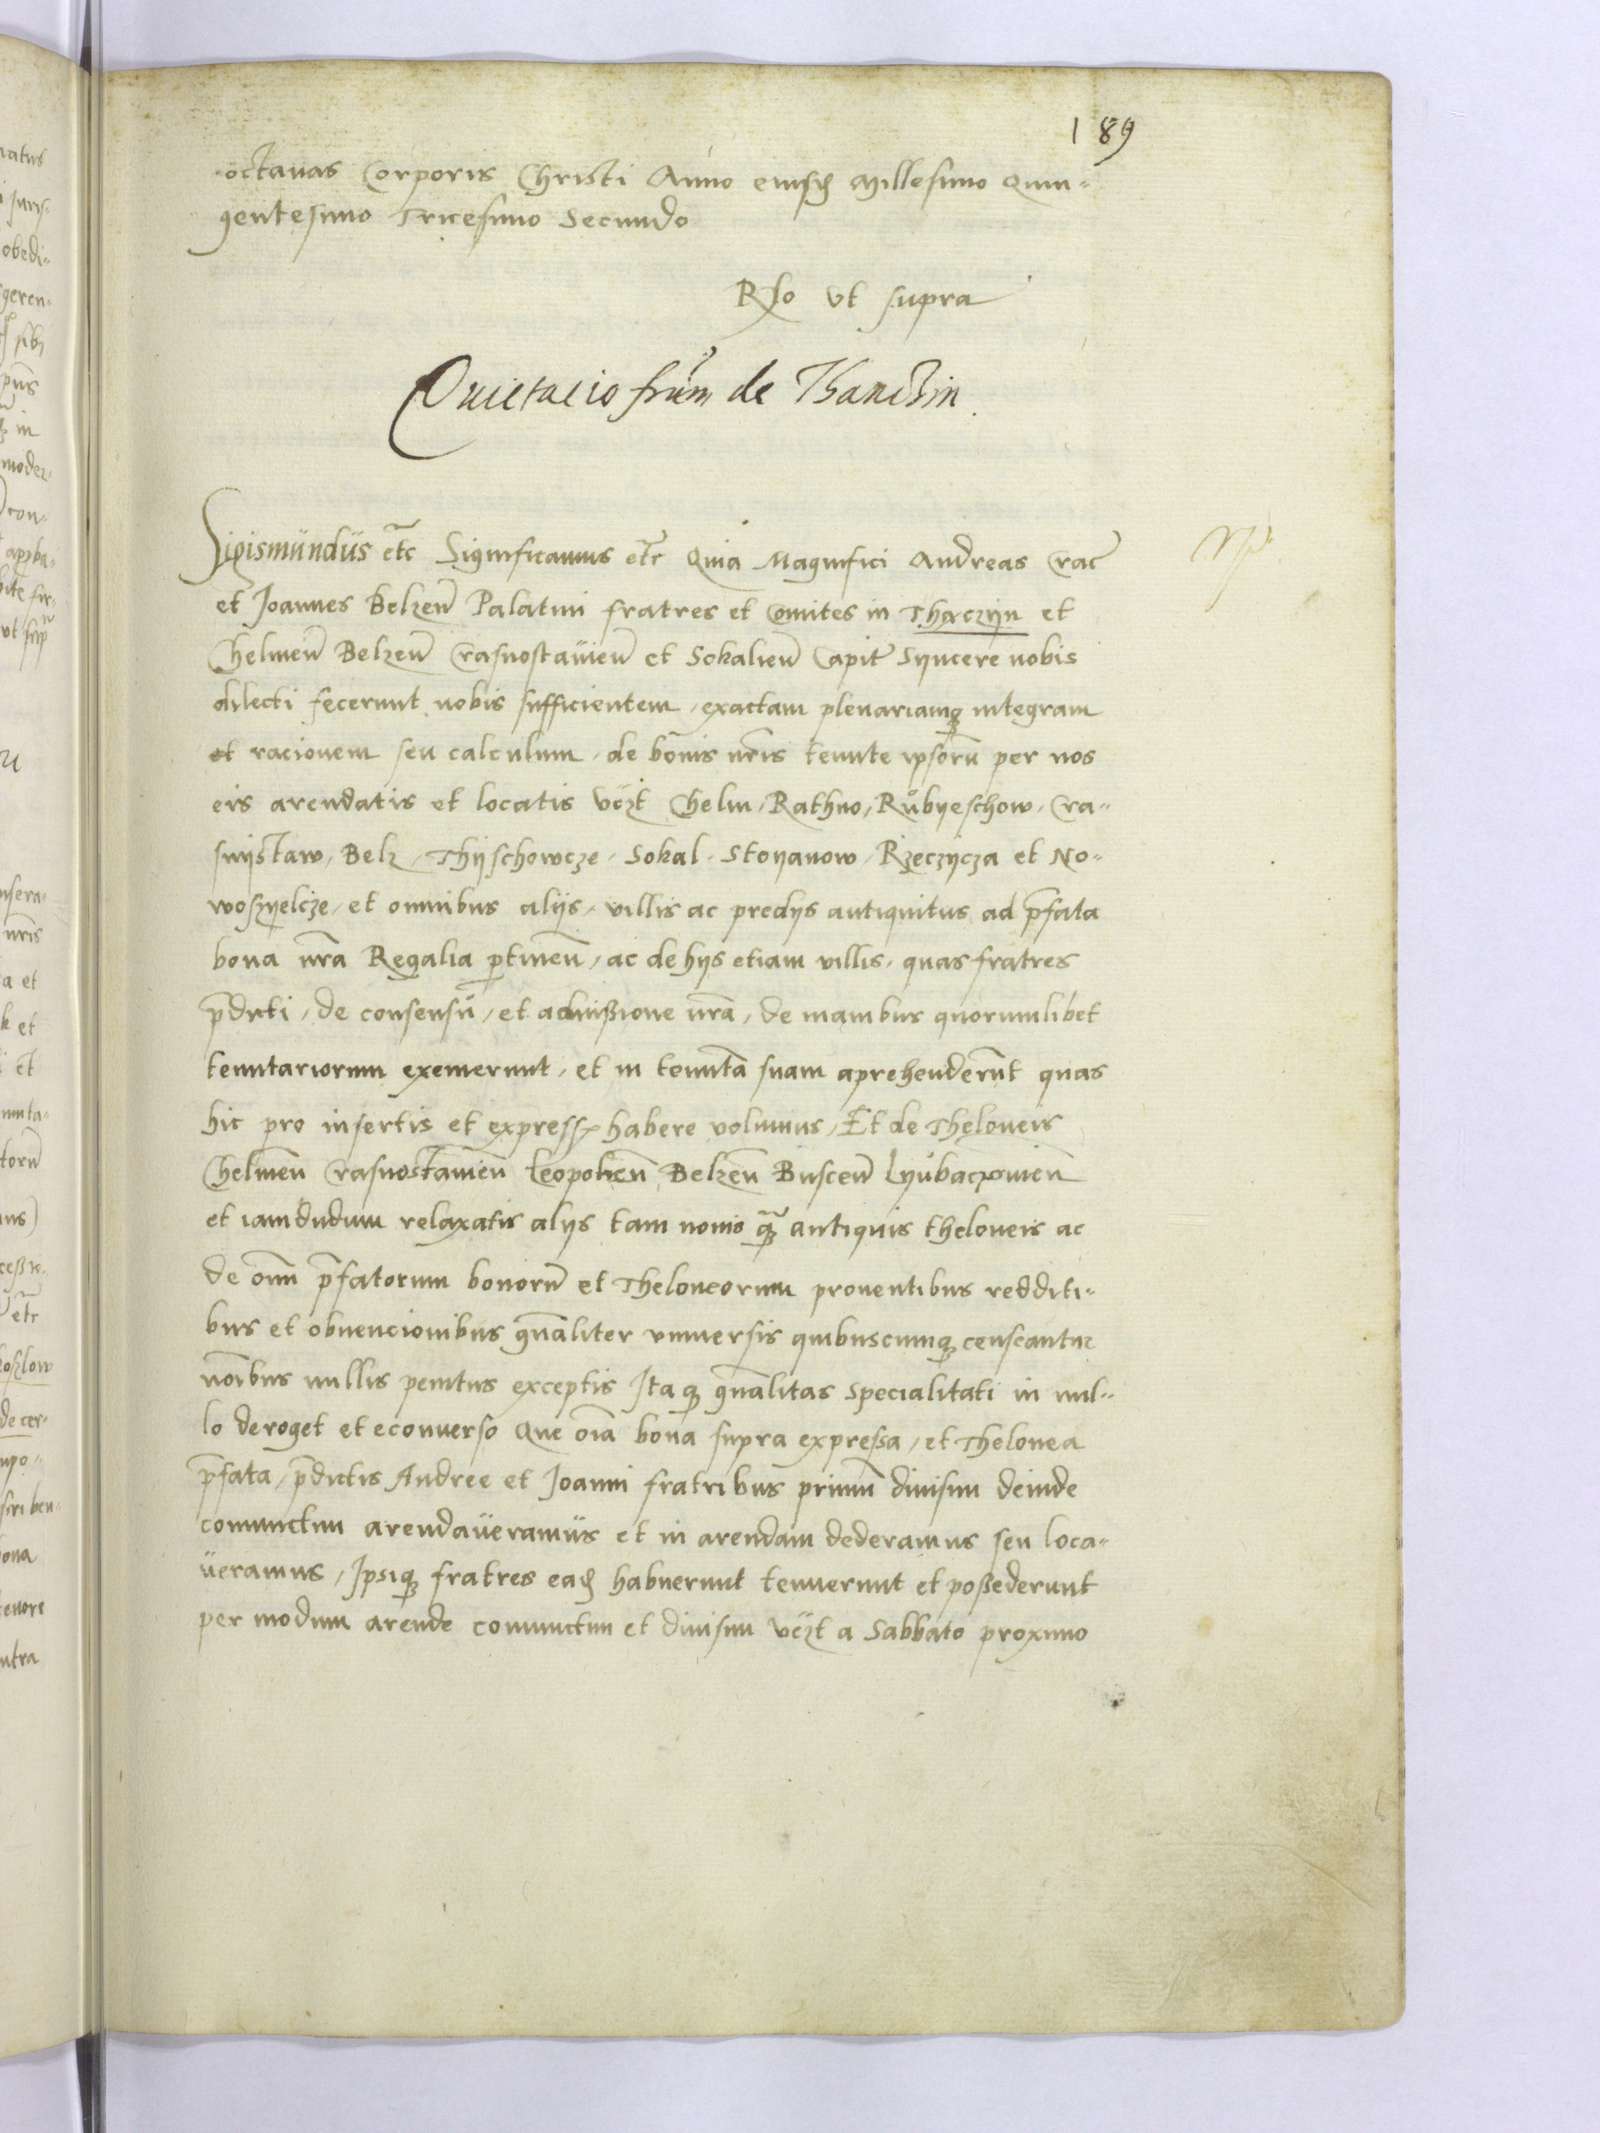 189
octauas Corporis Christi Anno eiusd Millesimo Quin-
gentesimo Tricesimo Secundo
Rlo vt supra
Quietacio frum de Thanczin
Sigismundus etc Significamus etc Quia Magnifici Andreas Crac
et Joannes Belzen Palatini fratres et Comites in Thaczyn et
Chelmen Belzen Crasnostauien et Sokalien Capit Syncere nobis
dilecti fecerunt nobis sufficientem, exactam plenariamq integram
et racionem seu calculum, de bonis nris tenute ipsoru per nos
eis arendatis et locatis vczt Chelm, Rathno, Rubyeschow, Cra-
snystaw, Belz, Thyschowcze, Sokal, Stoyanow, Rzeczycza et No-
woszyelcze, et omnibus alijs, villis ac predijs antiquitus ad pfata
bona nra Regalia ptinen, ac de hijs etiam villis, quas fratres
pdicti, de consensu, et admissione nra, de manibus quorumlibet
tenutariorum exemerunt, et in tenuta suam aprehenderunt quas
hic pro insertis et express habere volumus, Et de Theloneis
Chelmen Crasnostauien Leopolien Belzen Buscen Lyubaczouien
et iamdudum relaxatis alijs tam nouo q antiquis theloneis ac
de oim pfatorum bonoru et Theloneorum prouentibus redditi-
bus et obuencionibus gnaliter vniuersis quibuscumq censeantur
noibus nullis penitus exceptis Ita q gnalitas specialitati in nul-
lo deroget et econuerso Que oia bona supra expressa, et Thelonea
pfata, pdictis Andree et Joanni fratribus primu diuisim deinde
coniunctim arendaueramus et in arendam dederamus seu loca-
ueramus, Ipsiq fratres ead habuerunt tenuerunt et possederunt
per modum arende coniunctim et diuisim vczt a Sabbato proximo